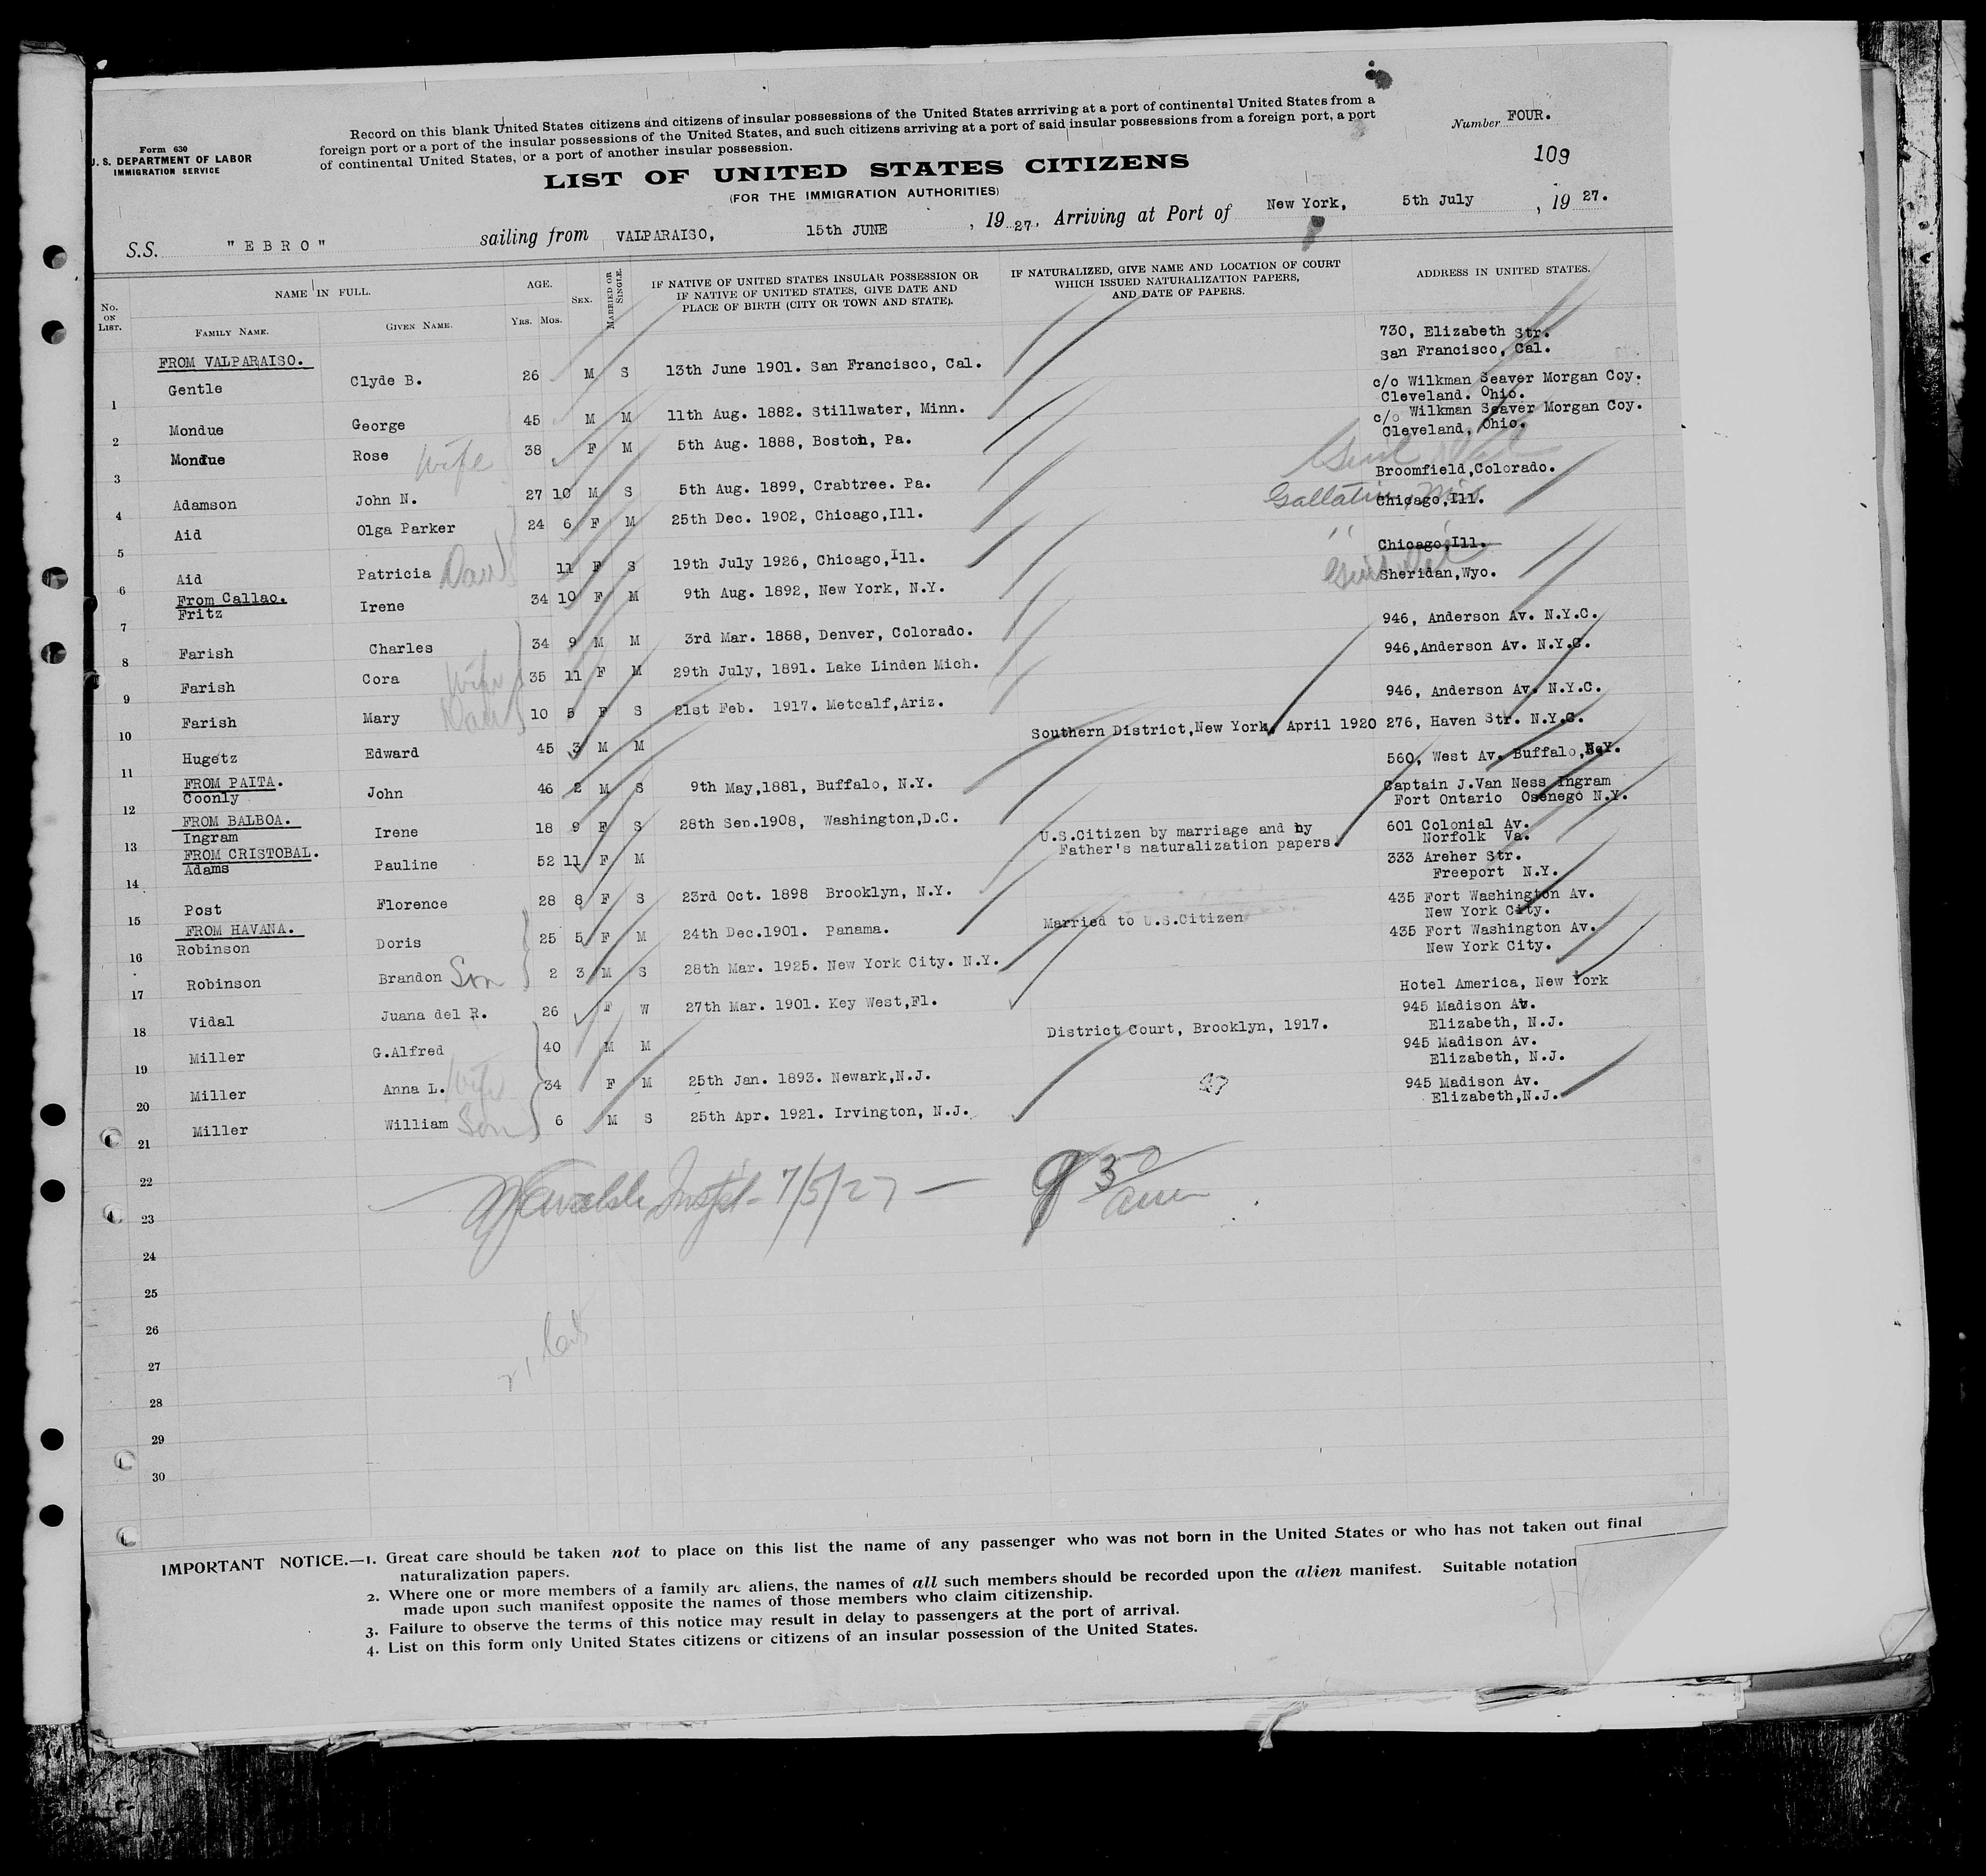 Form 630
U. S. DEPARTMENT OF LABOR
IMMIGRATION SERVICE
Record on this blank United States citizens and citizens of insular possessions of the United States arrriving at a port of continental United States from a
foreign port or a port of the insular possessions of the United States, and such citizens arriving at a port of said insular possessions from a foreign port, a port
of continental United States, or a port of another insular possession.
Number FOUR.
109
LIST OF UNITED STATES CITIZENS
(FOR THE IMMIGRATION AUTHORITIES)
S.S. "EBRO" sailing from VALPARAISO, 15th JUNE , 19 27. Arriving at Port of New York, 5th July , 19 27.
No. ON LIST. NAME IN FULL. AGE. SEX. MARRIED OR SINGLE. IF NATIVE OF UNITED STATES INSULAR POSSESSION OR IF NATIVE OF UNITED STATES, GIVE DATE AND PLACE OF BIRTH (CITY OR TOWN AND STATE). IF NATURALIZED, GIVE NAME AND LOCATION OF COURT WHICH ISSUED NATURALIZATION PAPERS, AND DATE OF PAPERS. ADDRESS IN UNITED STATES.
FAMILY NAME. GIVEN NAME. YRS. MOS.
FROM VALPARAISO.
1 Gentle Clyde B. 26 M S 13th June 1901. San Francisco, Cal. 730, Elizabeth Str. San Francisco, Cal.
2 Mondue George 45 M M 11th Aug. 1882. Stillwater, Minn. c/o Wilkman Seaver Morgan Coy. Cleveland. Ohio.
3 Mondue Rose wife 38 F M 5th Aug. 1888, Boston, Pa. c/o Wilkman Seaver Morgan Coy. Cleveland, Ohio.
4 Adamson John N. 27 10 M S 5th Aug. 1899, Crabtree. Pa. Broomfield,Colorado.
5 Aid Olga Parker 24 6 F M 25th Dec. 1902, Chicago,Ill. Gallatin, Chicago,Ill.
6 Aid Patricia Dau 11 F S 19th July 1926, Chicago,Ill. " Chicago,Ill.
From Callao.
7 Fritz Irene 34 10 F M 9th Aug. 1892, New York, N.Y. Sheridan,Wyo.
8 Farish Charles 34 9 M M 3rd Mar. 1888, Denver, Colorado. 946, Anderson Av. N.Y.C.
9 Farish Cora Wife 35 11 F M 29th July, 1891. Lake Linden Mich. 946,Anderson Av. N.Y.C.
10 Farish Mary Dau 10 5 F S 21st Feb. 1917. Metcalf,Ariz. 946, Anderson Av. N.Y.C.
11 Hugetz Edward 45 3 M M Southern District,New York, April 1920 276, Haven Str. N.Y.C.
FROM PAITA.
12 Coonly John 46 2 M S 9th May,1881, Buffalo, N.Y. 560, West Av. Buffalo,N.Y.
FROM BALBOA.
13 Ingram Irene 18 9 F S 28th Sep.1908, Washington,D.C. Captain J.Van Ness Ingram Fort Ontario Osenego N.Y.
FROM CRISTOBAL.
14 Adams Pauline 52 11 F M U.S.Citizen by marriage and by Father's naturalization papers. 601 Colonial Av. Norfolk Va.
15 Post Florence 28 8 F S 23rd Oct. 1898 Brooklyn, N.Y. 333 Areher Str. Freeport N.Y.
FROM HAVANA.
16 Robinson Doris 25 5 F M 24th Dec.1901. Panama. Married to U.S.Citizen 435 Fort Washington Av. New York City.
17 Robinson Brandon Son 2 3 M S 28th Mar. 1925. New York City. N.Y. 435 Fort Washington Av. New York City.
18 Vidal Juana del R. 26 F W 27th Mar. 1901. Key West,Fl. Hotel America, New York
19 Miller G.Alfred 40 M M District Court, Brooklyn, 1917. 945 Madison Av. Elizabeth, N.J.
20 Miller Anna L. Wife 34 F M 25th Jan. 1893. Newark,N.J. 945 Madison Av. Elizabeth, N.J.
21 Miller William Son 6 M S 25th Apr. 1921. Irvington, N.J. 945 Madison Av. Elizabeth,N.J.
22
7/5/27 —
23
24
25
26
27
28
29
30
IMPORTANT NOTICE.—1. Great care should be taken not to place on this list the name of any passenger who was not born in the United States or who has not taken out final
naturalization papers.
2. Where one or more members of a family are aliens, the names of all such members should be recorded upon the alien manifest. Suitable notation
made upon such manifest opposite the names of those members who claim citizenship.
3. Failure to observe the terms of this notice may result in delay to passengers at the port of arrival.
4. List on this form only United States citizens or citizens of an insular possession of the United States.